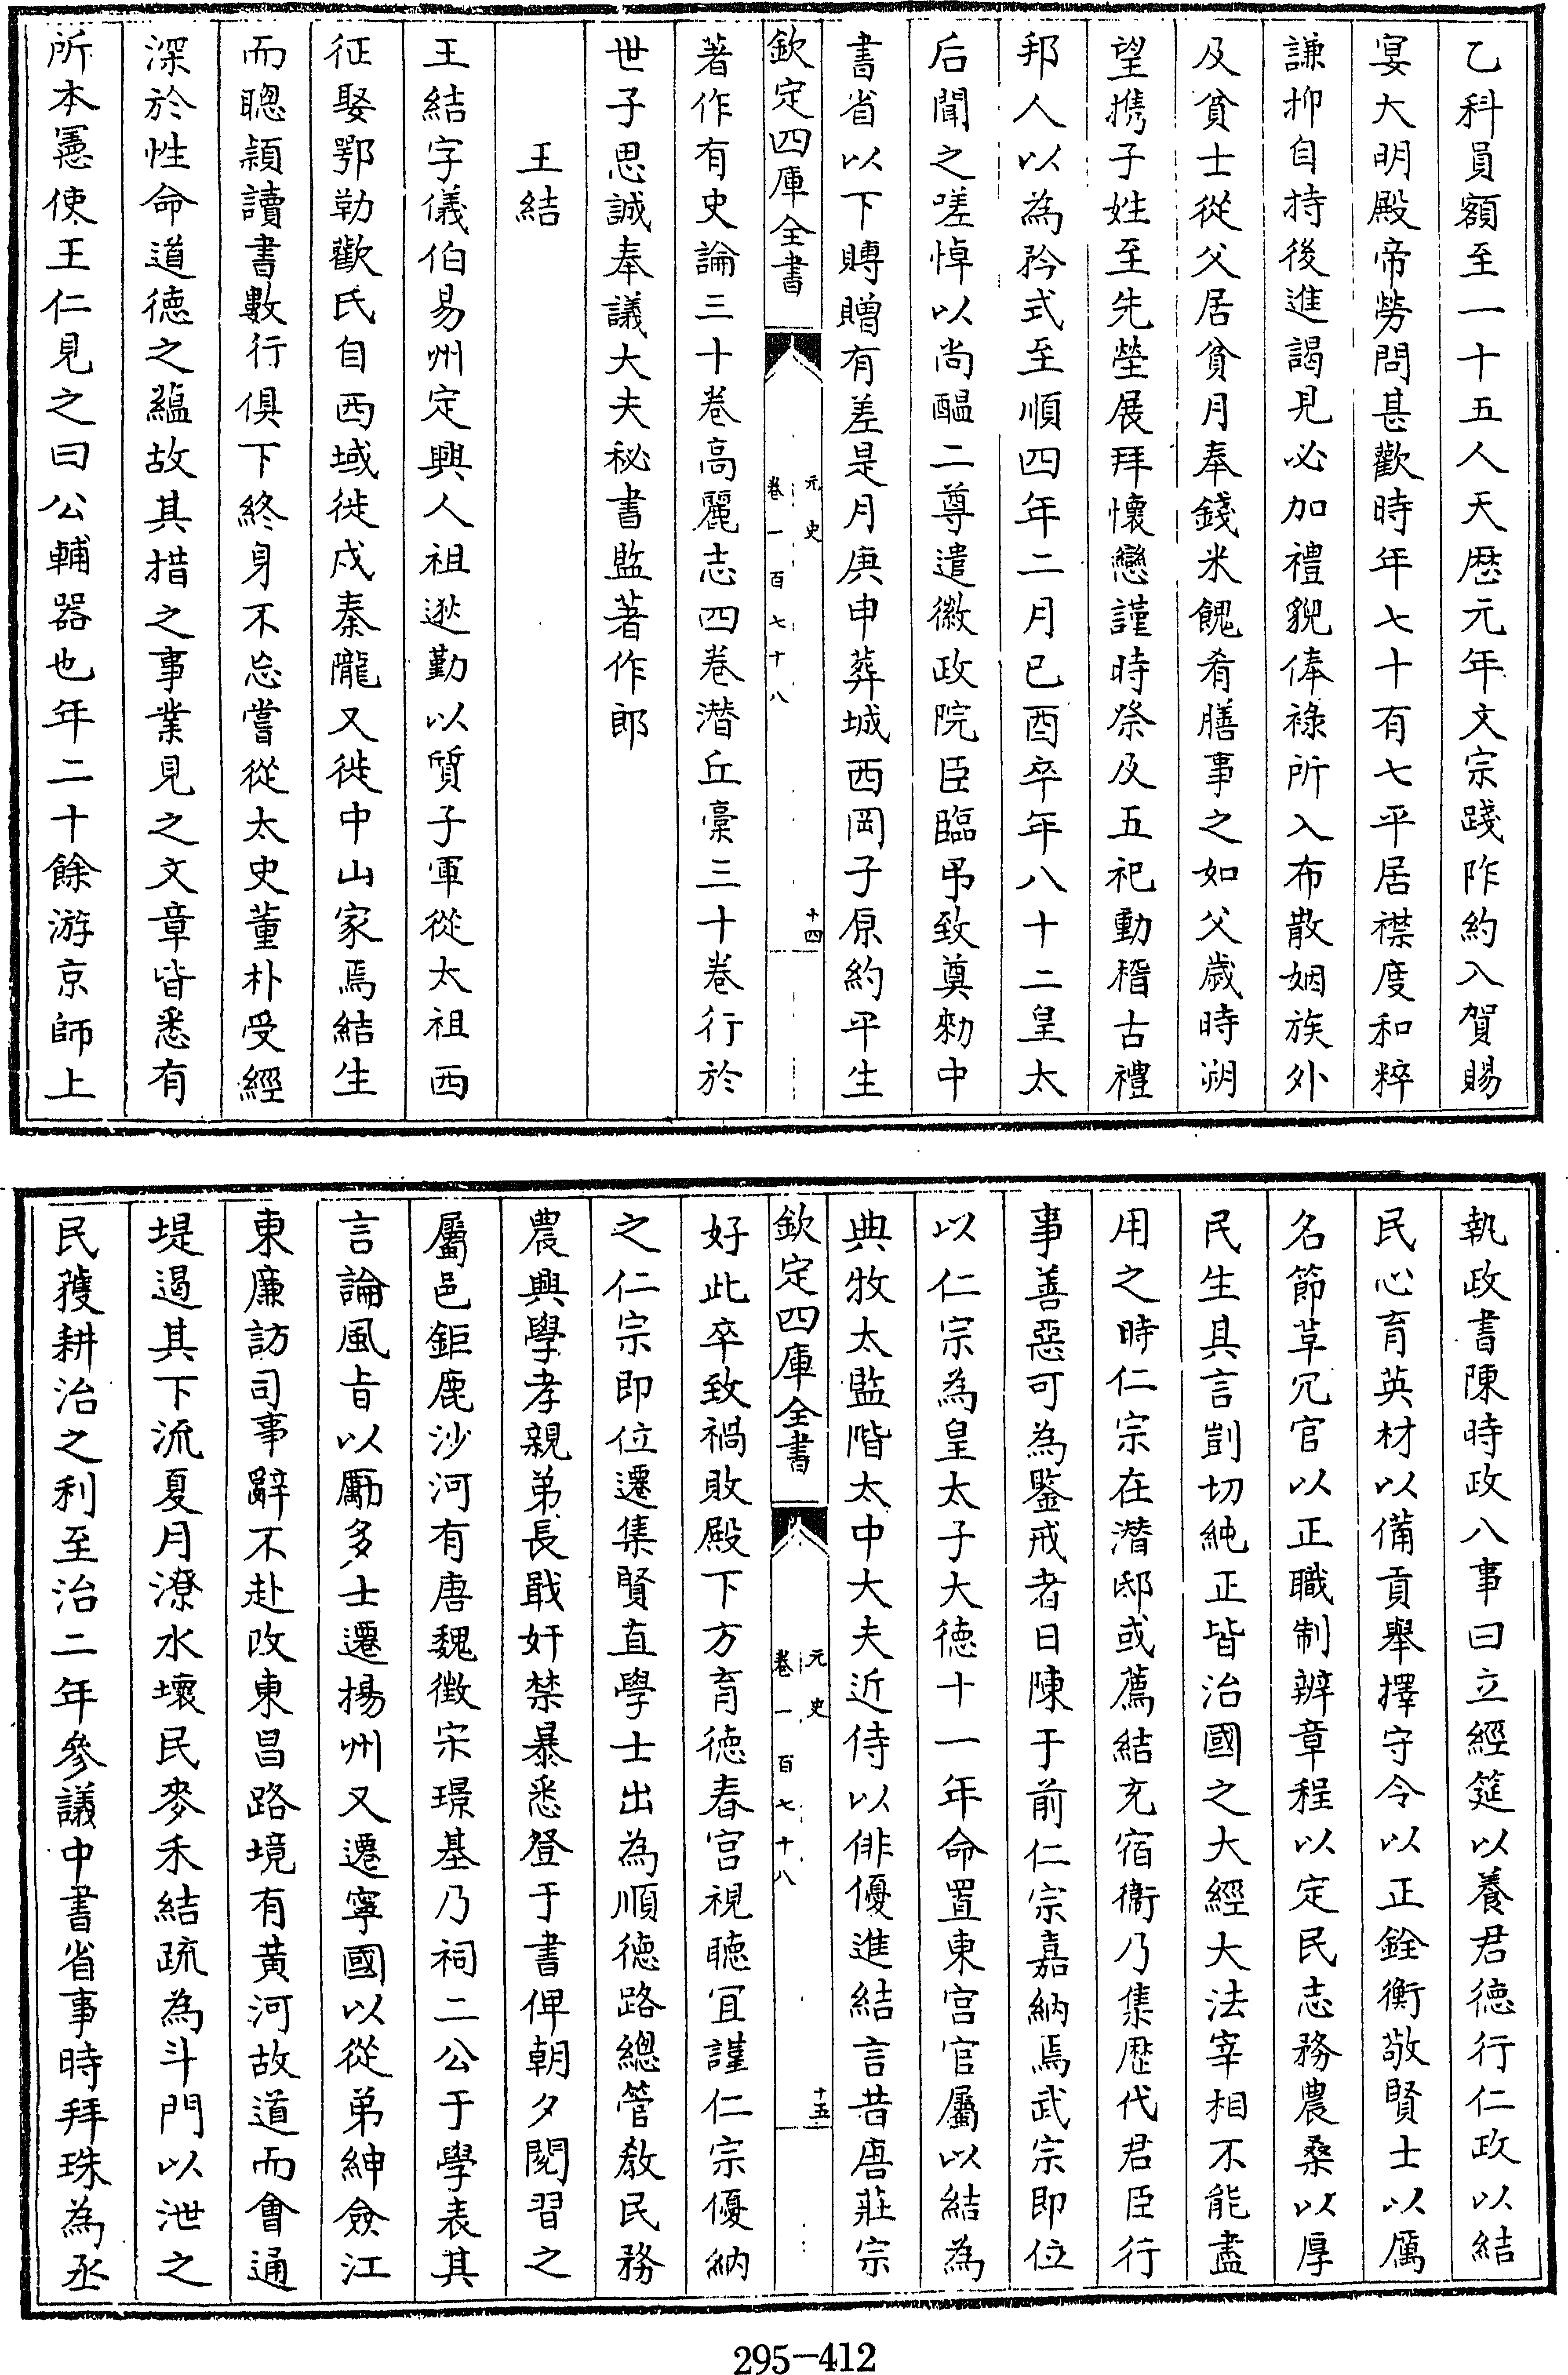 乙科員額至一十五人天歴元年文宗踐阼約入賀賜
宴大明殿帝勞問甚歡時年七十有七平居襟度和粹
謙抑自持後進謁見必加禮貎俸祿所入布散姻族外
及貧士從父居貧月奉錢米餽肴膳事之如父歳時朔
望携子姓至先塋展拜懷戀謹時祭及五祀動稽古禮
邦人以為矜式至順四年二月已酉卒年八十二皇太
后聞之嗟悼以尚醖二尊遣徽政院臣臨弔致奠勅中
書省以下賻贈有差是月庚申葬城西岡子原約平生
欽定四庫全書
元史
卷一百七十八
十四
著作有史論三十卷高麗志四卷潛丘稾三十卷行於
世子思誠奉議大夫秘書監著作郎
王結
王結字儀伯易州定興人祖逖勤以質子軍從太祖西
征娶鄂勒歡氏自西域徙戍秦隴又徙中山家焉結生
而聰頴讀書數行俱下終身不忘嘗從太史董朴受經
深於性命道徳之蘊故其措之事業見之文章皆悉有
所本憲使王仁見之曰公輔器也年二十餘游京師上
執政書陳時政八事曰立經筵以養君徳行仁政以結
民心育英材以備貢舉擇守令以正銓衡敬賢士以厲
名節革冗官以正職制辨章程以定民志務農桑以厚
民生其言剴切純正皆治國之大經大法宰相不能盡
用之時仁宗在潛邸或薦結充宿衞乃集歴代君臣行
事善惡可為鑒戒者日陳于前仁宗嘉納焉武宗即位
以仁宗為皇太子大徳十一年命置東宫官屬以結為
典牧太監階太中大夫近侍以俳優進結言昔唐莊宗
欽定四庫全書
元史
卷一百七十八
十五
好此卒致禍敗殿下方育徳春宫視聴宜謹仁宗優納
之仁宗即位遷集賢直學士出為順徳路總管敎民務
農興學孝親弟長戢奸禁暴悉登于書俾朝夕閱習之
屬邑鉅鹿沙河有唐魏徴宋璟基乃祠二公于學表其
言論風旨以勵多士遷揚州又遷寧國以從弟紳僉江
東廉訪司事辭不赴改東昌路境有黄河故道而會通
堤遏其下流夏月潦水壞民麥禾結疏為斗門以泄之
民獲耕治之利至治二年參議中書省事時拜珠為丞
295-412